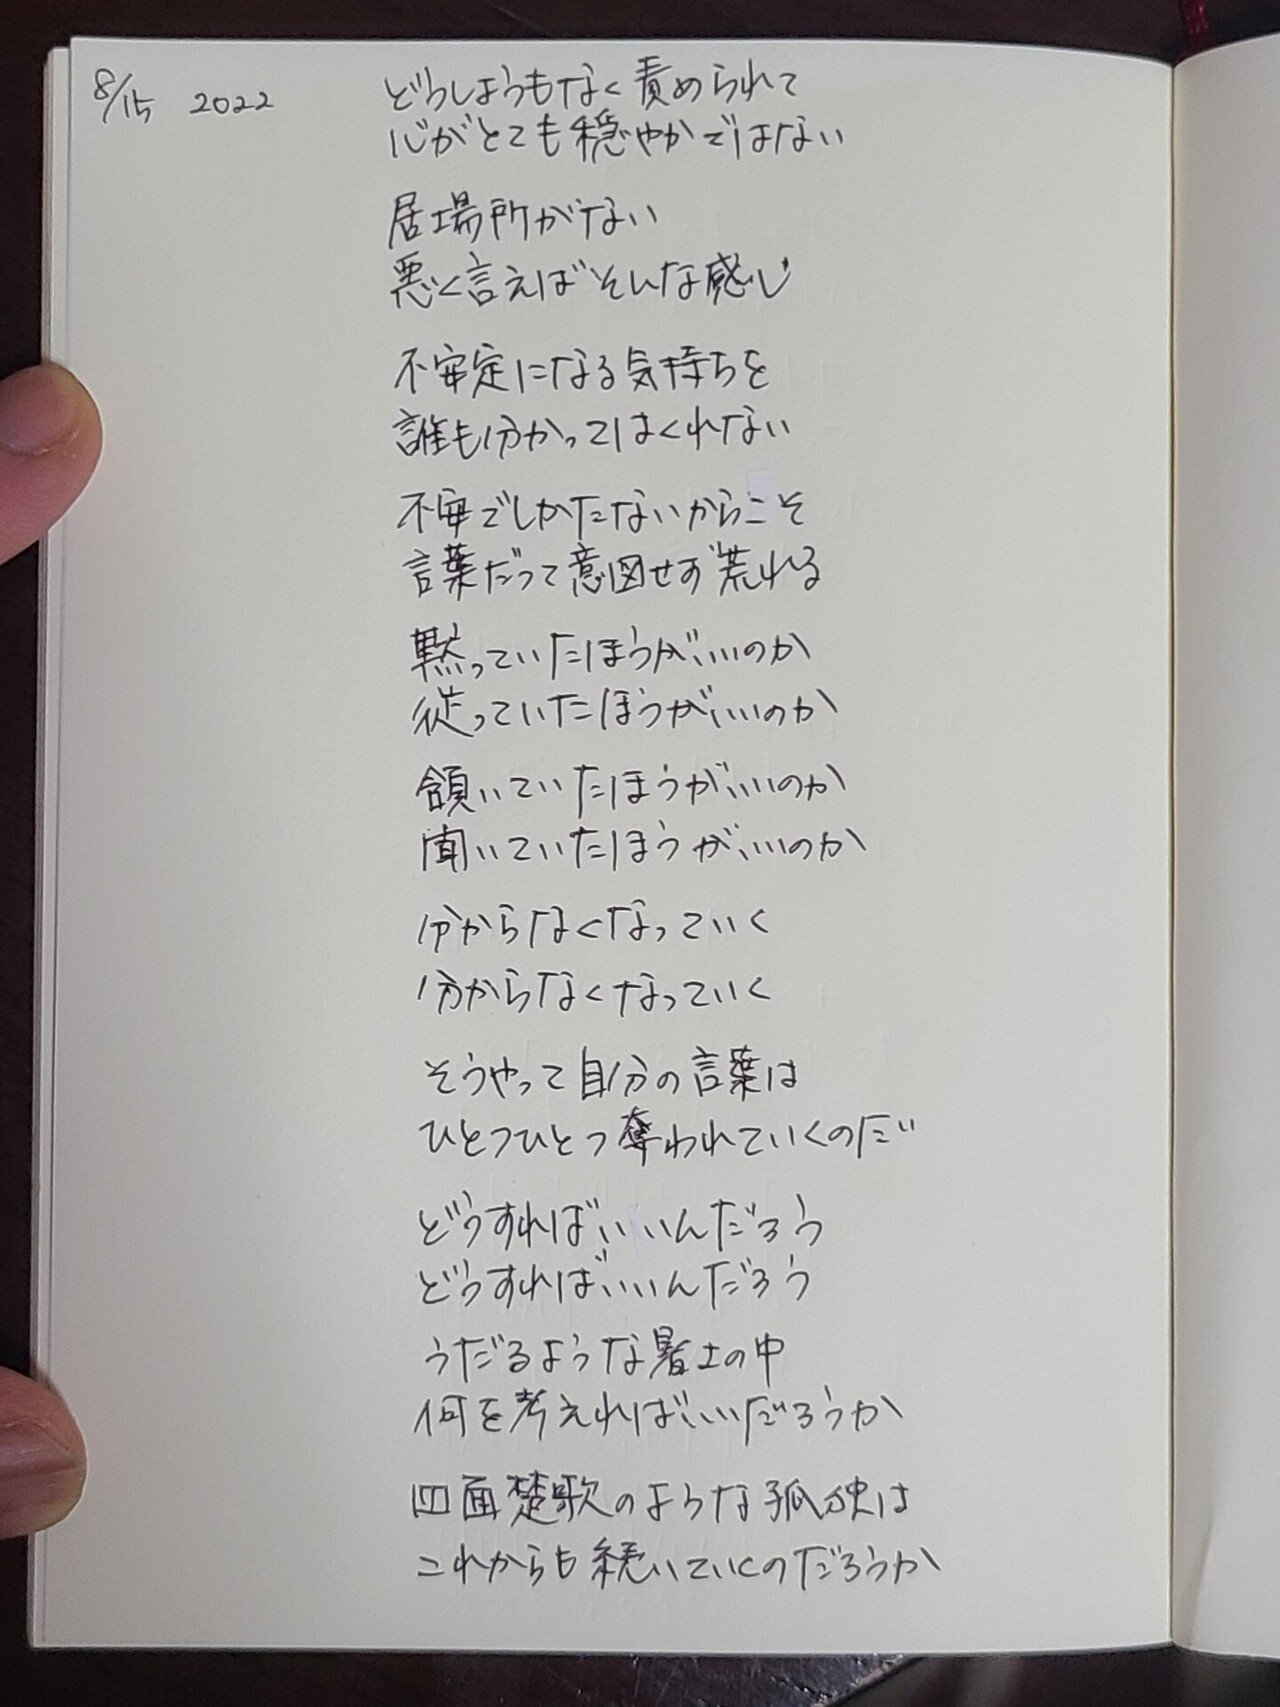 8/15 2022
どうしようもなく責められて
心がとても穏やかではない
居場所がない
悪く言えばそんな感じ
不安定になる気持ちを
誰も分かってはくれない
不安でしかたないからこそ
言葉だって意図せず荒れる
黙っていたほうがいいのか
従っていたほうがいいのか
頷いていたほうがいいのか
聞いていたほうがいいのか
分からなくなっていく
分からなくなっていく
そうやって自分の言葉は
ひとつひとつ奪われていくのだ
どうすればいいんだろう
どうすればいいんだろう
うだるような暑さの中
何を考えればいいだろうか
四面楚歌のような孤独は
これからも続いていくのだろうか